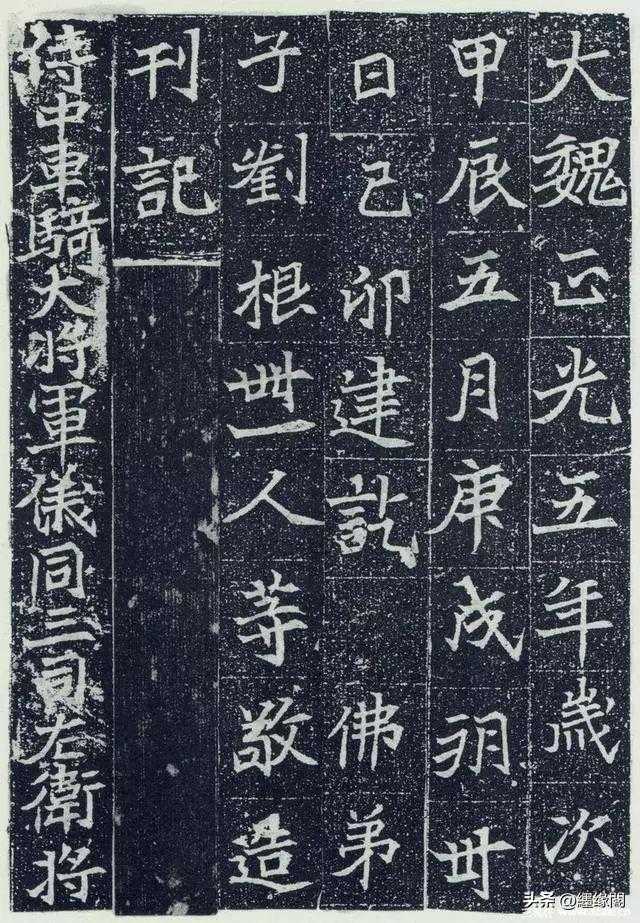 大魏正光五年歲次
甲辰五月庚戌朔卅
日己卯建訖 佛弟
子劉根卌一人等敬造
刊記
侍中車騎大將軍儀同三司右衛將
头条 @缠缘阁